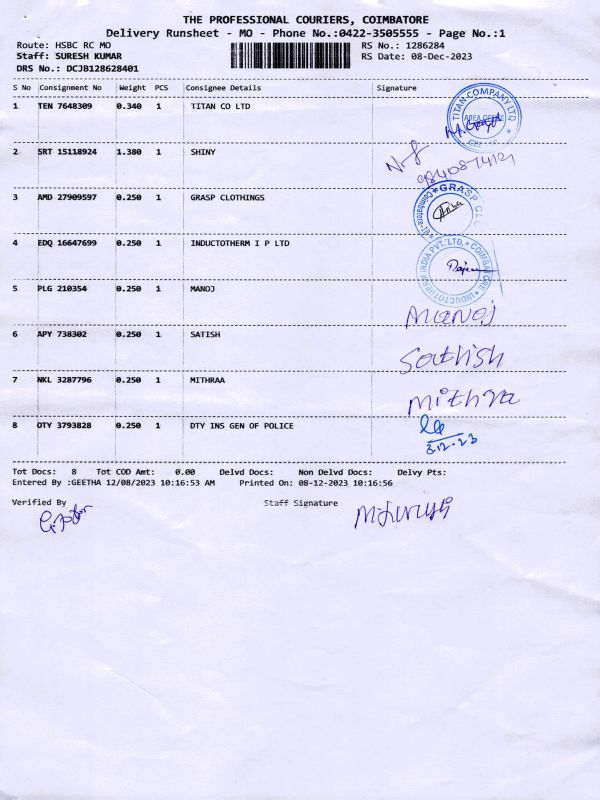 THE PROFESSIONAL COURIERS, COIMBATORE
Delivery Runsheet - MO - Phone No.:0422-3505555 - Page No.:1
Route: HSBC RC MO RS No.: 1286284
Staff: SURESH KUMAR RS Date: 08-Dec-2023
DRS No.: DCJB128628401
S No Consignment No Weight PCS Consignee Details Signature
1 TEN 7648309 0.340 1 TITAN CO LTD
TITAN COMPANY LTD
AREA OFFICE
2 SRT 15118924 1.380 1 SHINY
3 AMD 27909597 0.250 1 GRASP CLOTHINGS
GRASP
4 EDQ 16647699 0.250 1 INDUCTOTHERM I P LTD
INDUCTOTHERM INDIA PVT. LTD. * COIMBATORE *
5 PLG 210354 0.250 1 MANOJ
Manoj
6 APY 738302 0.250 1 SATISH
Sathish
7 NKL 3287796 0.250 1 MITHRAA
Mithra
8 OTY 3793828 0.250 1 DTY INS GEN OF POLICE
Tot Docs: 8 Tot COD Amt: 0.00 Delvd Docs: Non Delvd Docs: Delvy Pts:
Entered By :GEETHA 12/08/2023 10:16:53 AM Printed On: 08-12-2023 10:16:56
Verified By Staff Signature